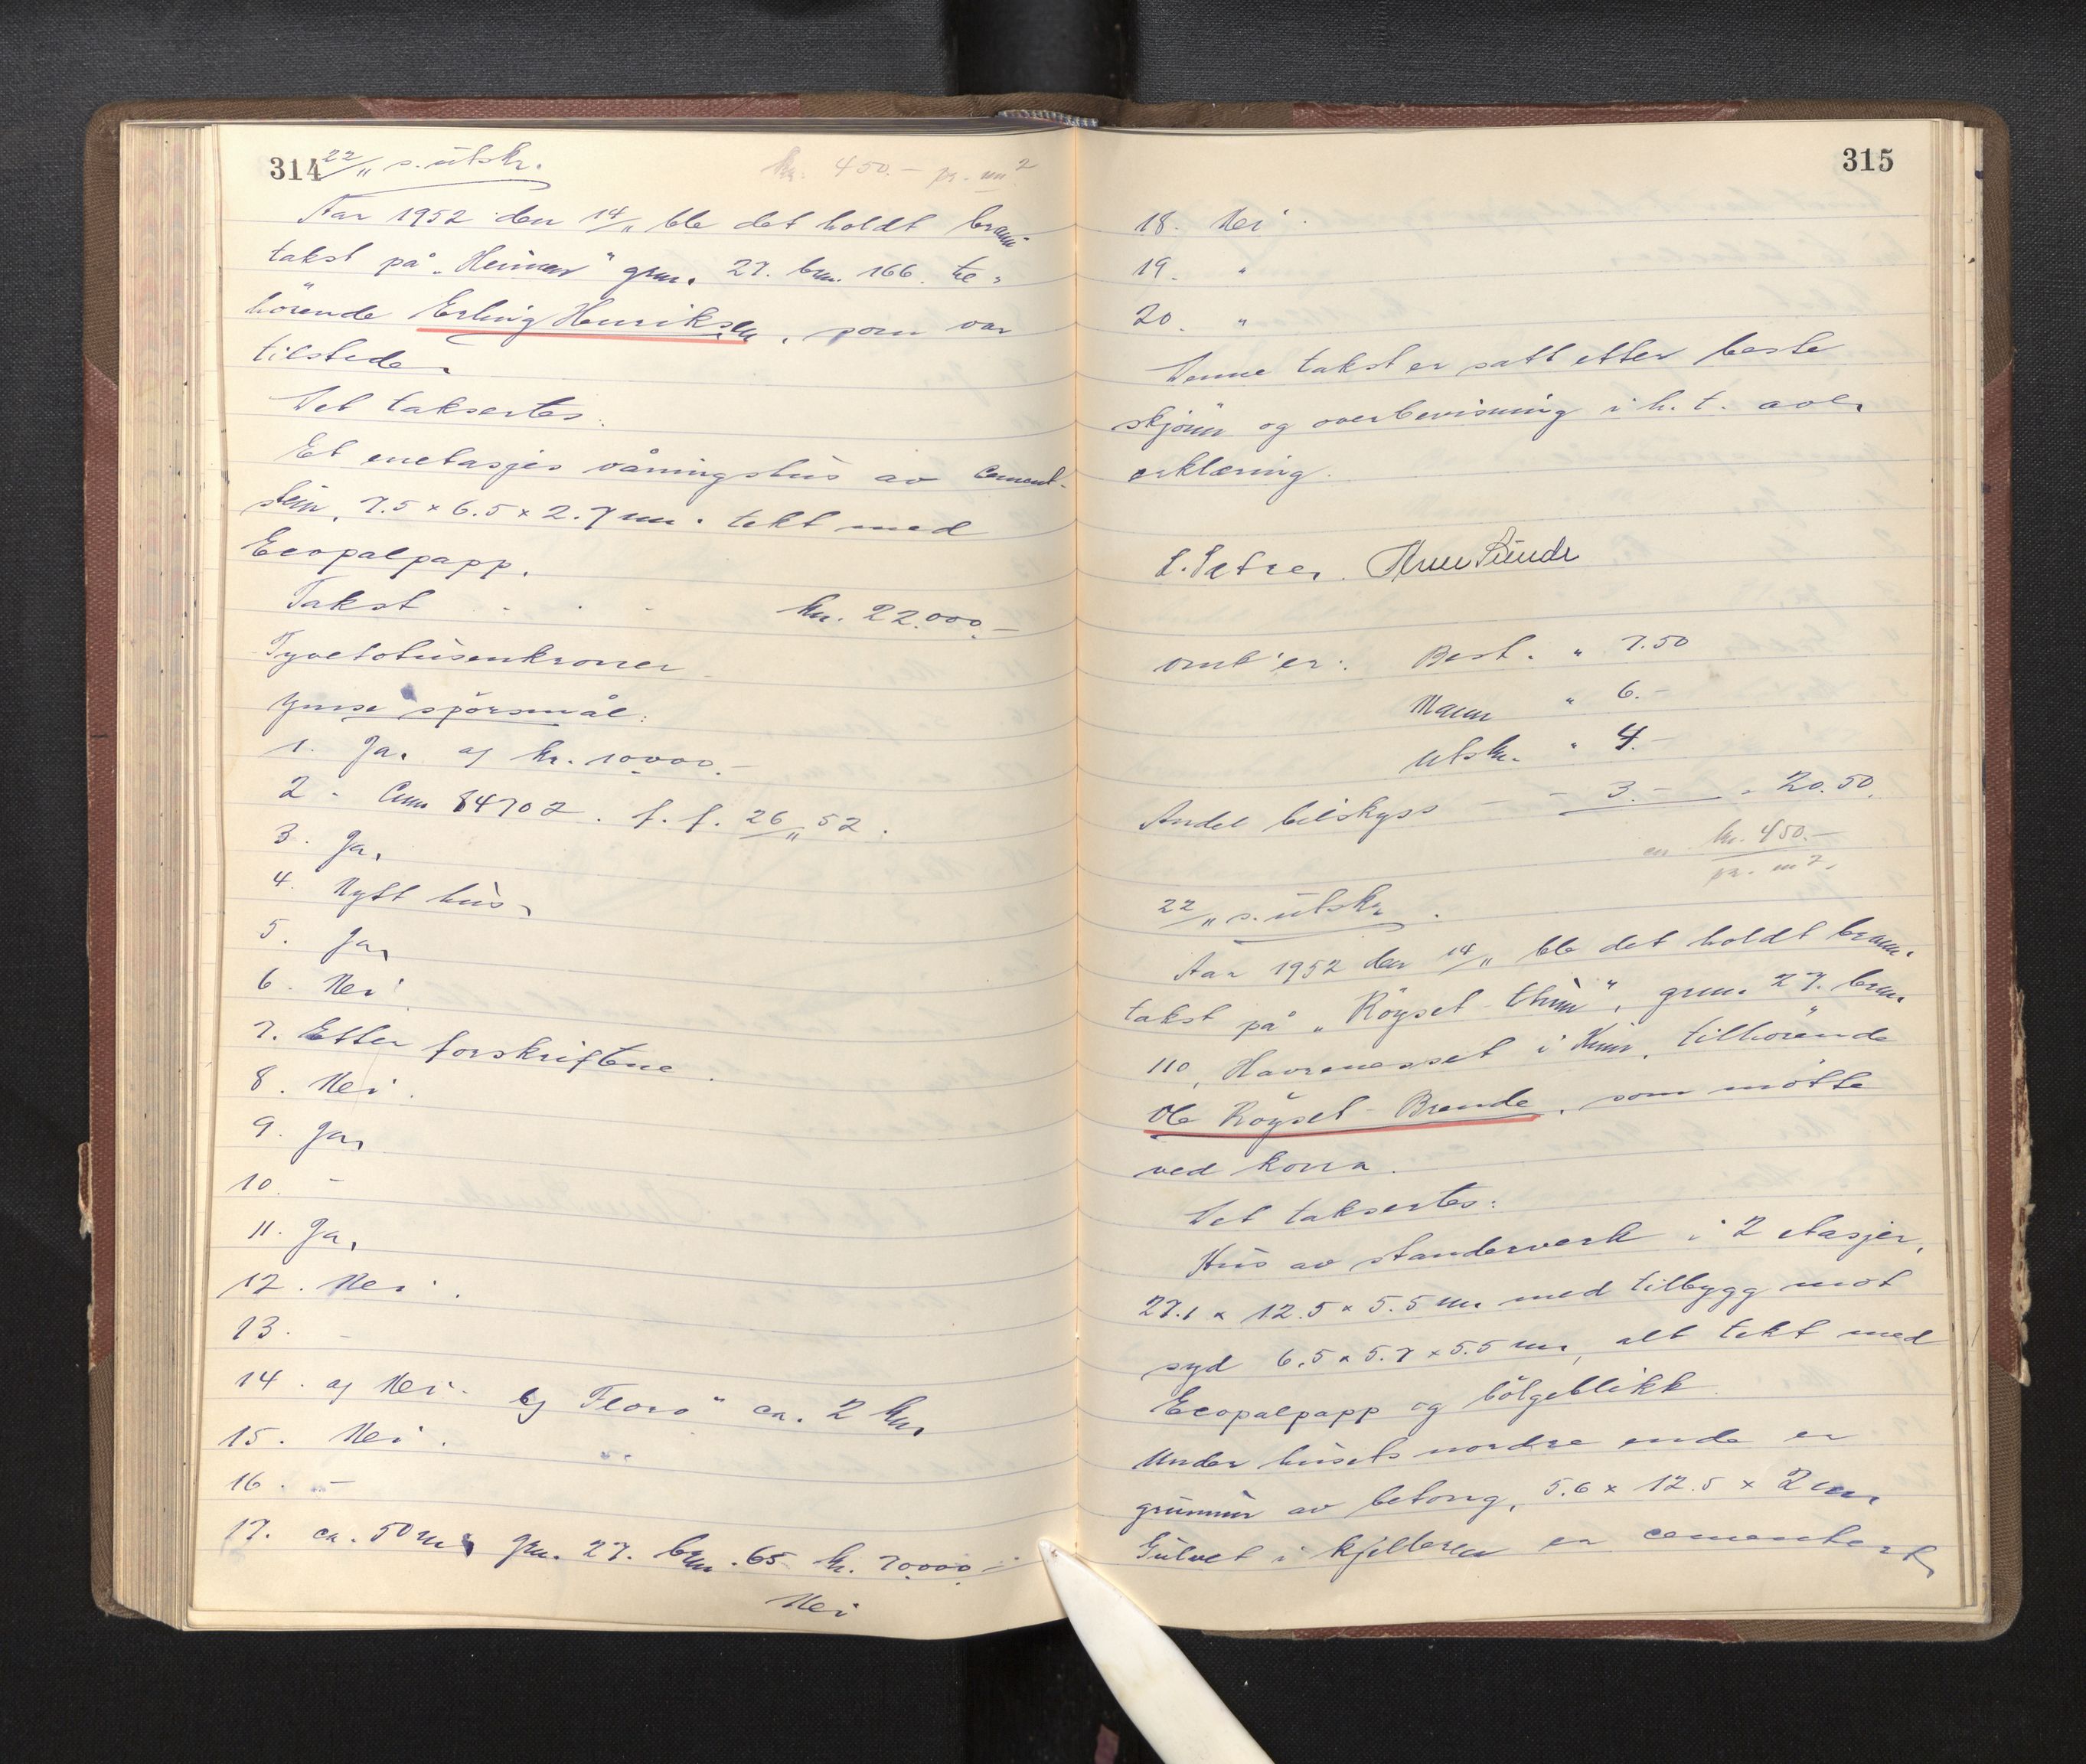 314 22/11 s. utskr. kr. 450.- pr. m2
Aar 1952 den 14/11 ble det holdt brann-
takst på "Heimen" gnr. 27. bnr. 166. til-
hörende Erling Henriksen, som var
tilstede.
Det taksertes:
Et enetasjes våningshus av cement-
stein, 7.5 x 6.5 x 2.7 m. tekt med
Ecopalpapp.
Takst - - - kr. 22.000.-
Tyvetotusenkroner
Ymse spörsmål:
1. Ja. a/ kr. 10000.-
2. Cum 84702. f. f. 26/11 52.
3. Ja.
4. Nytt hus.
5. Ja.
6. Nei.
7. Etter forskriftene.
8. Nei.
9. Ja.
10. -
11. Ja.
12. Nei.
13. -
14. a/ Nei. b/ Florö ca. 2 km
15. Nei.
16. -
17. ca. 50 m. gnr. 27. bnr. 65 kr. 70000.-
Nei
315
18. Nei.
19. "
20. "
Denne takst er satt etter beste
skjönn og overbevisning i h. t. avl.
erklæring.
omk'er: Best. " 7.50
Mann " 6.-
Utskr. " 4.-
Andel bilskyss - - 3.- " 20.50.
kr. 450.-
pr. m2.
22/11 s. utskr.
Aar 1952 den 14/11 ble det holdt brann-
takst på "Röyset-thun", gnr. 27. bnr.
110, Havrenesset i Kinn, tilhörende
Ole Röyset-Brende, som mötte
ved kona.
Det taksertes:
Hus av standerverk i 2 etasjer,
27.1 x 12.5 x 5.5 m med tilbygg mot
syd 6.5 x 5.7 x 5.5 m, alt tekt med
Ecopalpapp og bölgeblikk.
Under husets nordre ende er
grunmur av betong, 5.6 x 12.5 x 2 m
Gulvet i kjelleren er cementert,